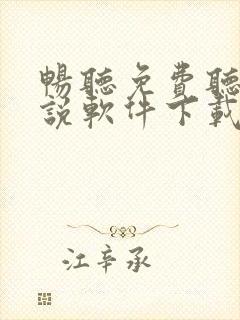 暢聽免費聽
說軟件下載
江辛承